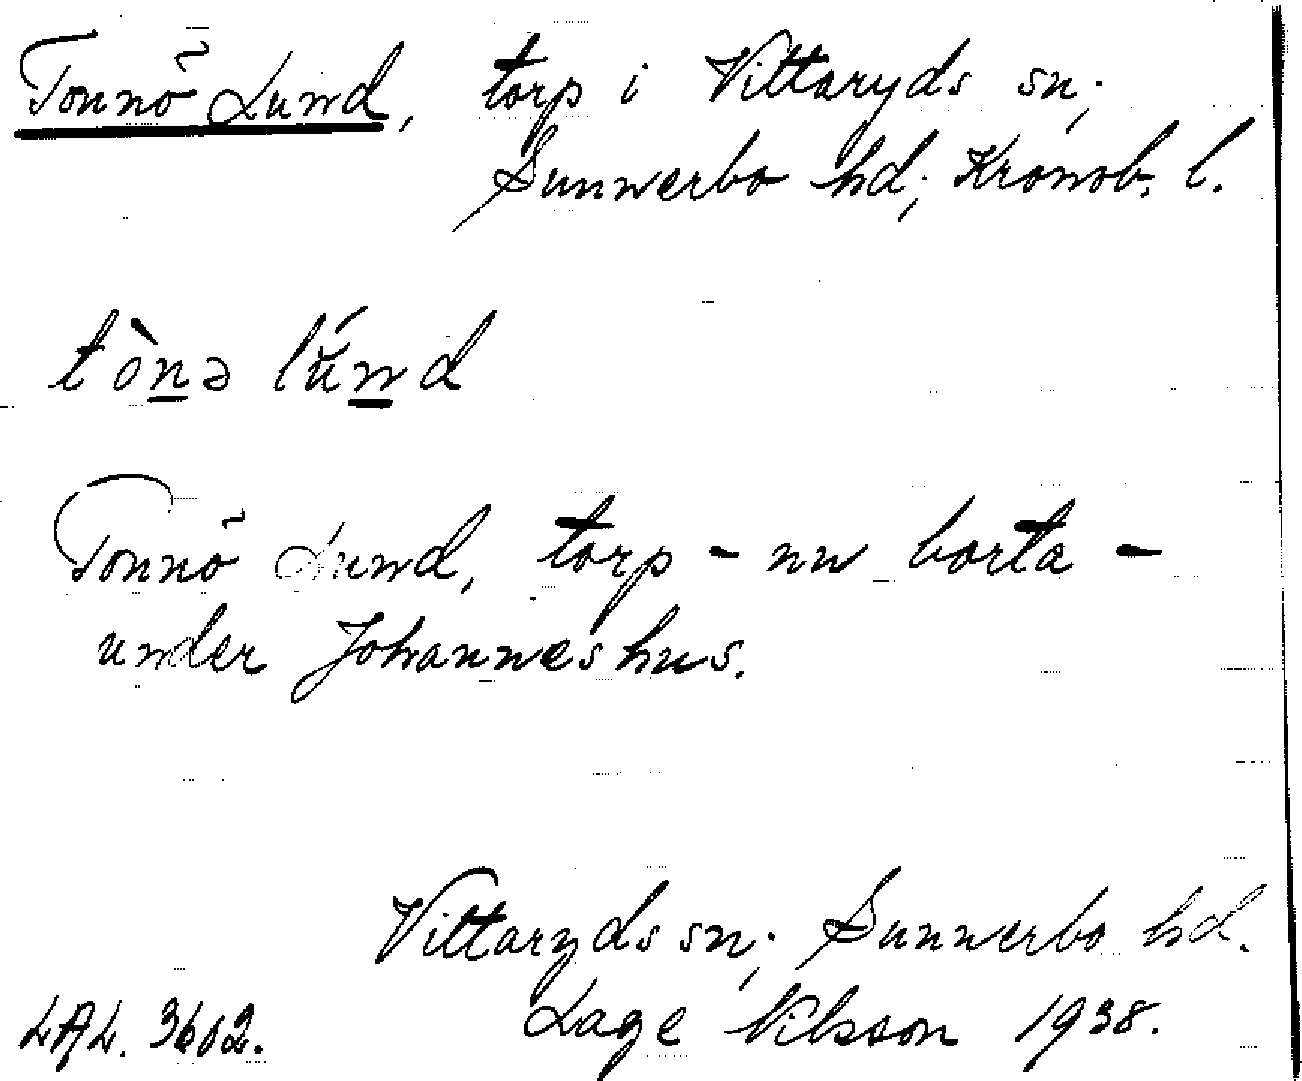 Tonnö Lund, torp i Vittaryds sn;
Sunnerbo hd; Kronob. l.
tònə lúnd
Tonnö Lund, torp - nu borta -
under Johanneshus.
Vittaryds sn; Sunnerbo hd.
LAL. 3662. Lage Nilsson 1938.